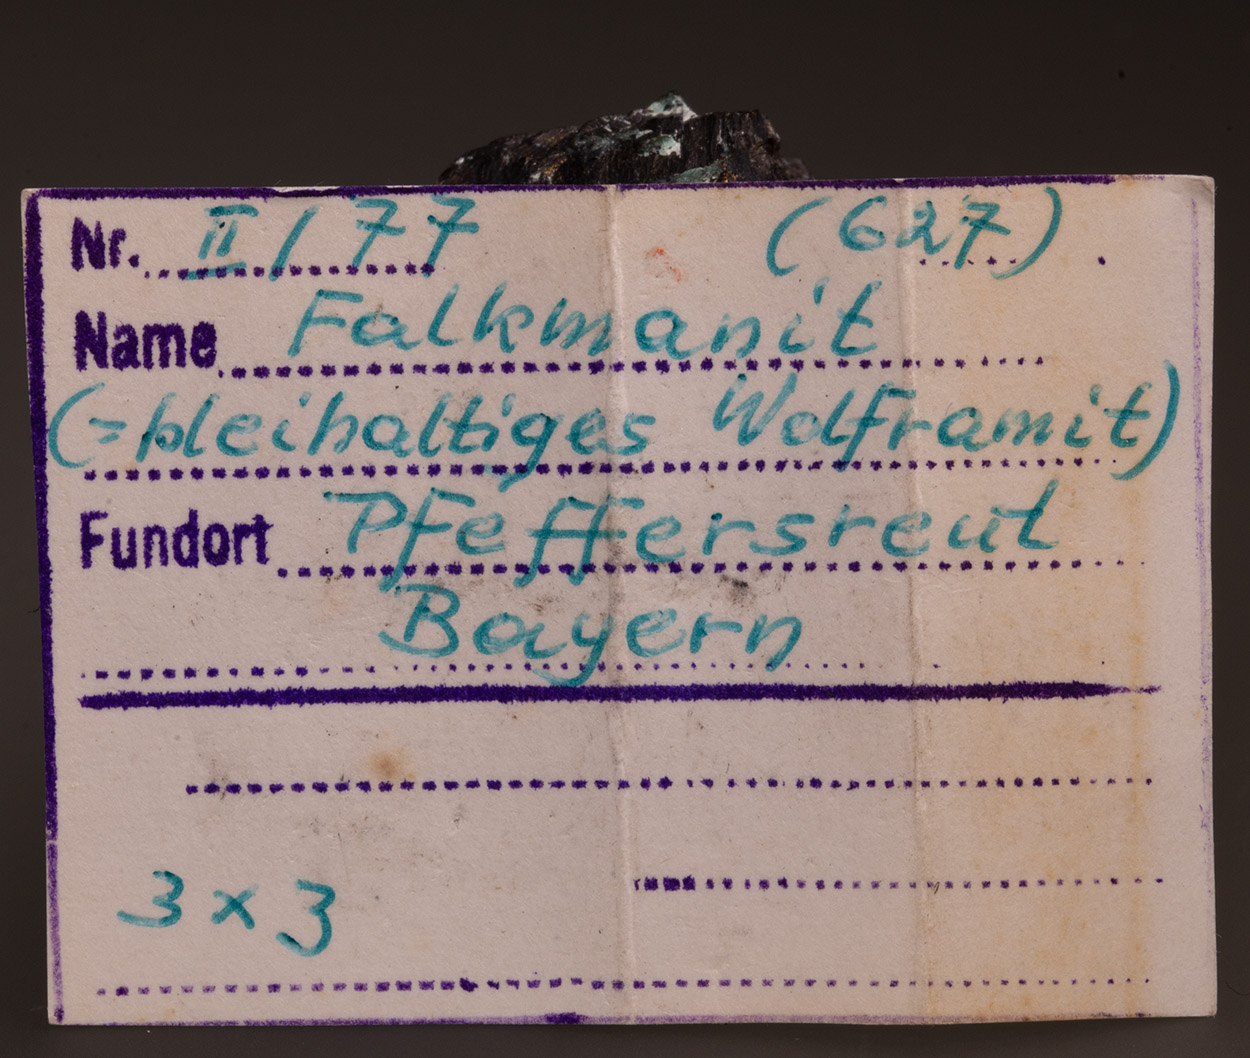 Nr. II / 77 (627)
Name Falkmanit
(= bleihaltiges Wolframit)
Fundort Pfeffersreut
Bayern
3 x 3